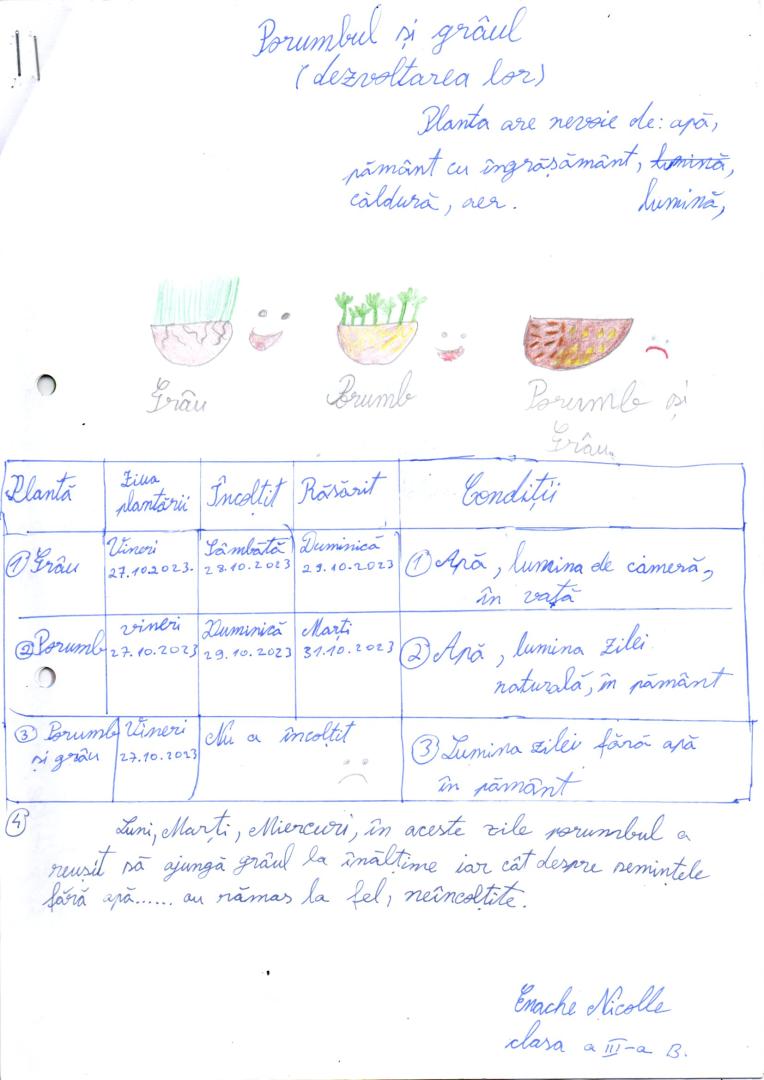 Porumbul și grâul
(dezvoltarea lor)
Planta are nevoie de: apă,
pământ cu îngrășământ, lumină,
căldură, aer. lumină,
Grâu
Porumb
Porumb și
Grâu
Plantă
Ziua
plantării
Încolțit
Răsărit
Condiții
1 Grâu
Vineri
27.10.2023.
Sâmbătă
28.10.2023
Duminică
29.10.2023
1 Apă, lumina de cameră,
în vată
2 Porumb
vineri
27.10.2023
Duminică
29.10.2023
Marți
31.10.2023
2 Apă, lumina zilei
naturală, în pământ
3 Porumb
și grâu
Vineri
27.10.2023
Nu a încolțit
3 Lumina zilei fără apă
în pământ
4 Luni, Marți, Miercuri, în aceste zile porumbul a
reușit să ajungă grâul la înălțime iar cât despre semințele
fără apă...... au rămas la fel, neîncolțite.
Enache Nicolle
clasa a III-a B.